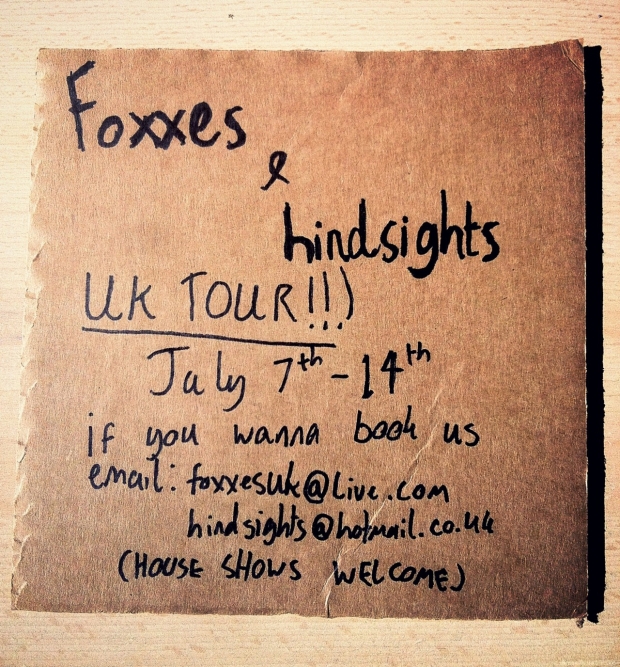 Foxxes
&
hindsights
UK TOUR!!!)
July 7th - 14th
if you wanna book us
email: foxxesuk@live.com
hindsights@hotmail.co.uk
(HOUSE SHOWS WELCOME)